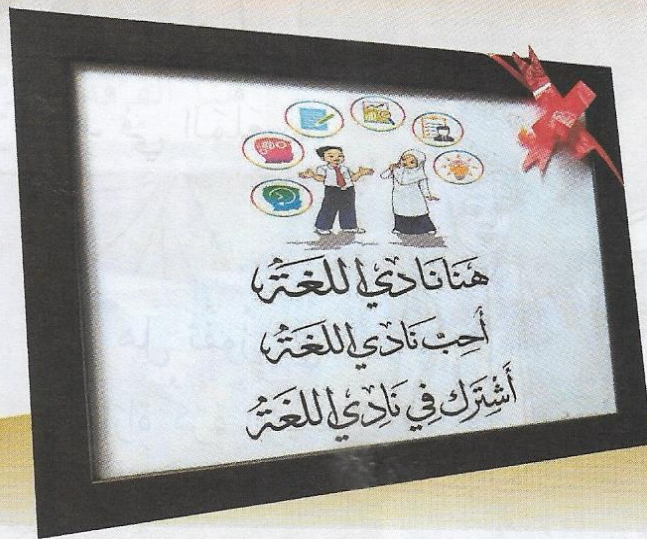 هَنَا نَادِي اللغَةُ
أُحِبّ نَادِي اللغَةُ
أَشْتَرِك فِي نَادِي اللغَةُ